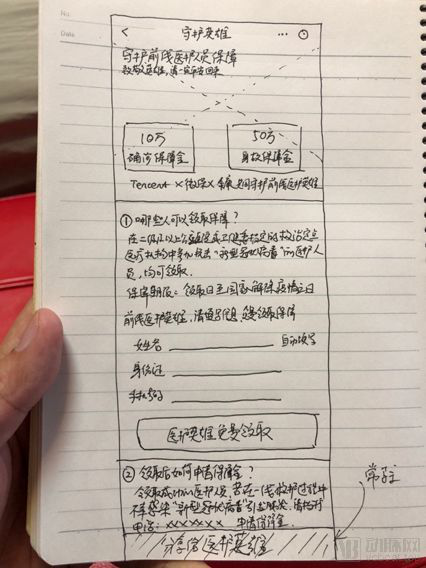 No.
Date
< 守护英雄 ...
守护前线医护人员保障
致敬英雄，请一定平安回来
10万
确诊保障金
50万
身故保障金
Tencent × 微保 × 泰康 共同守护前线医护英雄
① 哪些人可以领取保障？
在二级及以上公立医院或卫健委指定的救治定点
医疗机构中参加抗击“新型冠状病毒”的医护人
员，均可领取。
保障期限：领取日至国家解除疫情之日
前线医护英雄，请填写信息，免费领取保障
姓名 自动填写
身份证
手机号码
医护英雄免费领取
② 领取后如何申请保障金？
领取成功的医护人员 若在一线救护过程中
不幸感染“新型冠状病毒”引起肺炎，请拨打
电话：xxxxxxx 申请保障金。
分享给医护英雄
常驻
动脉网